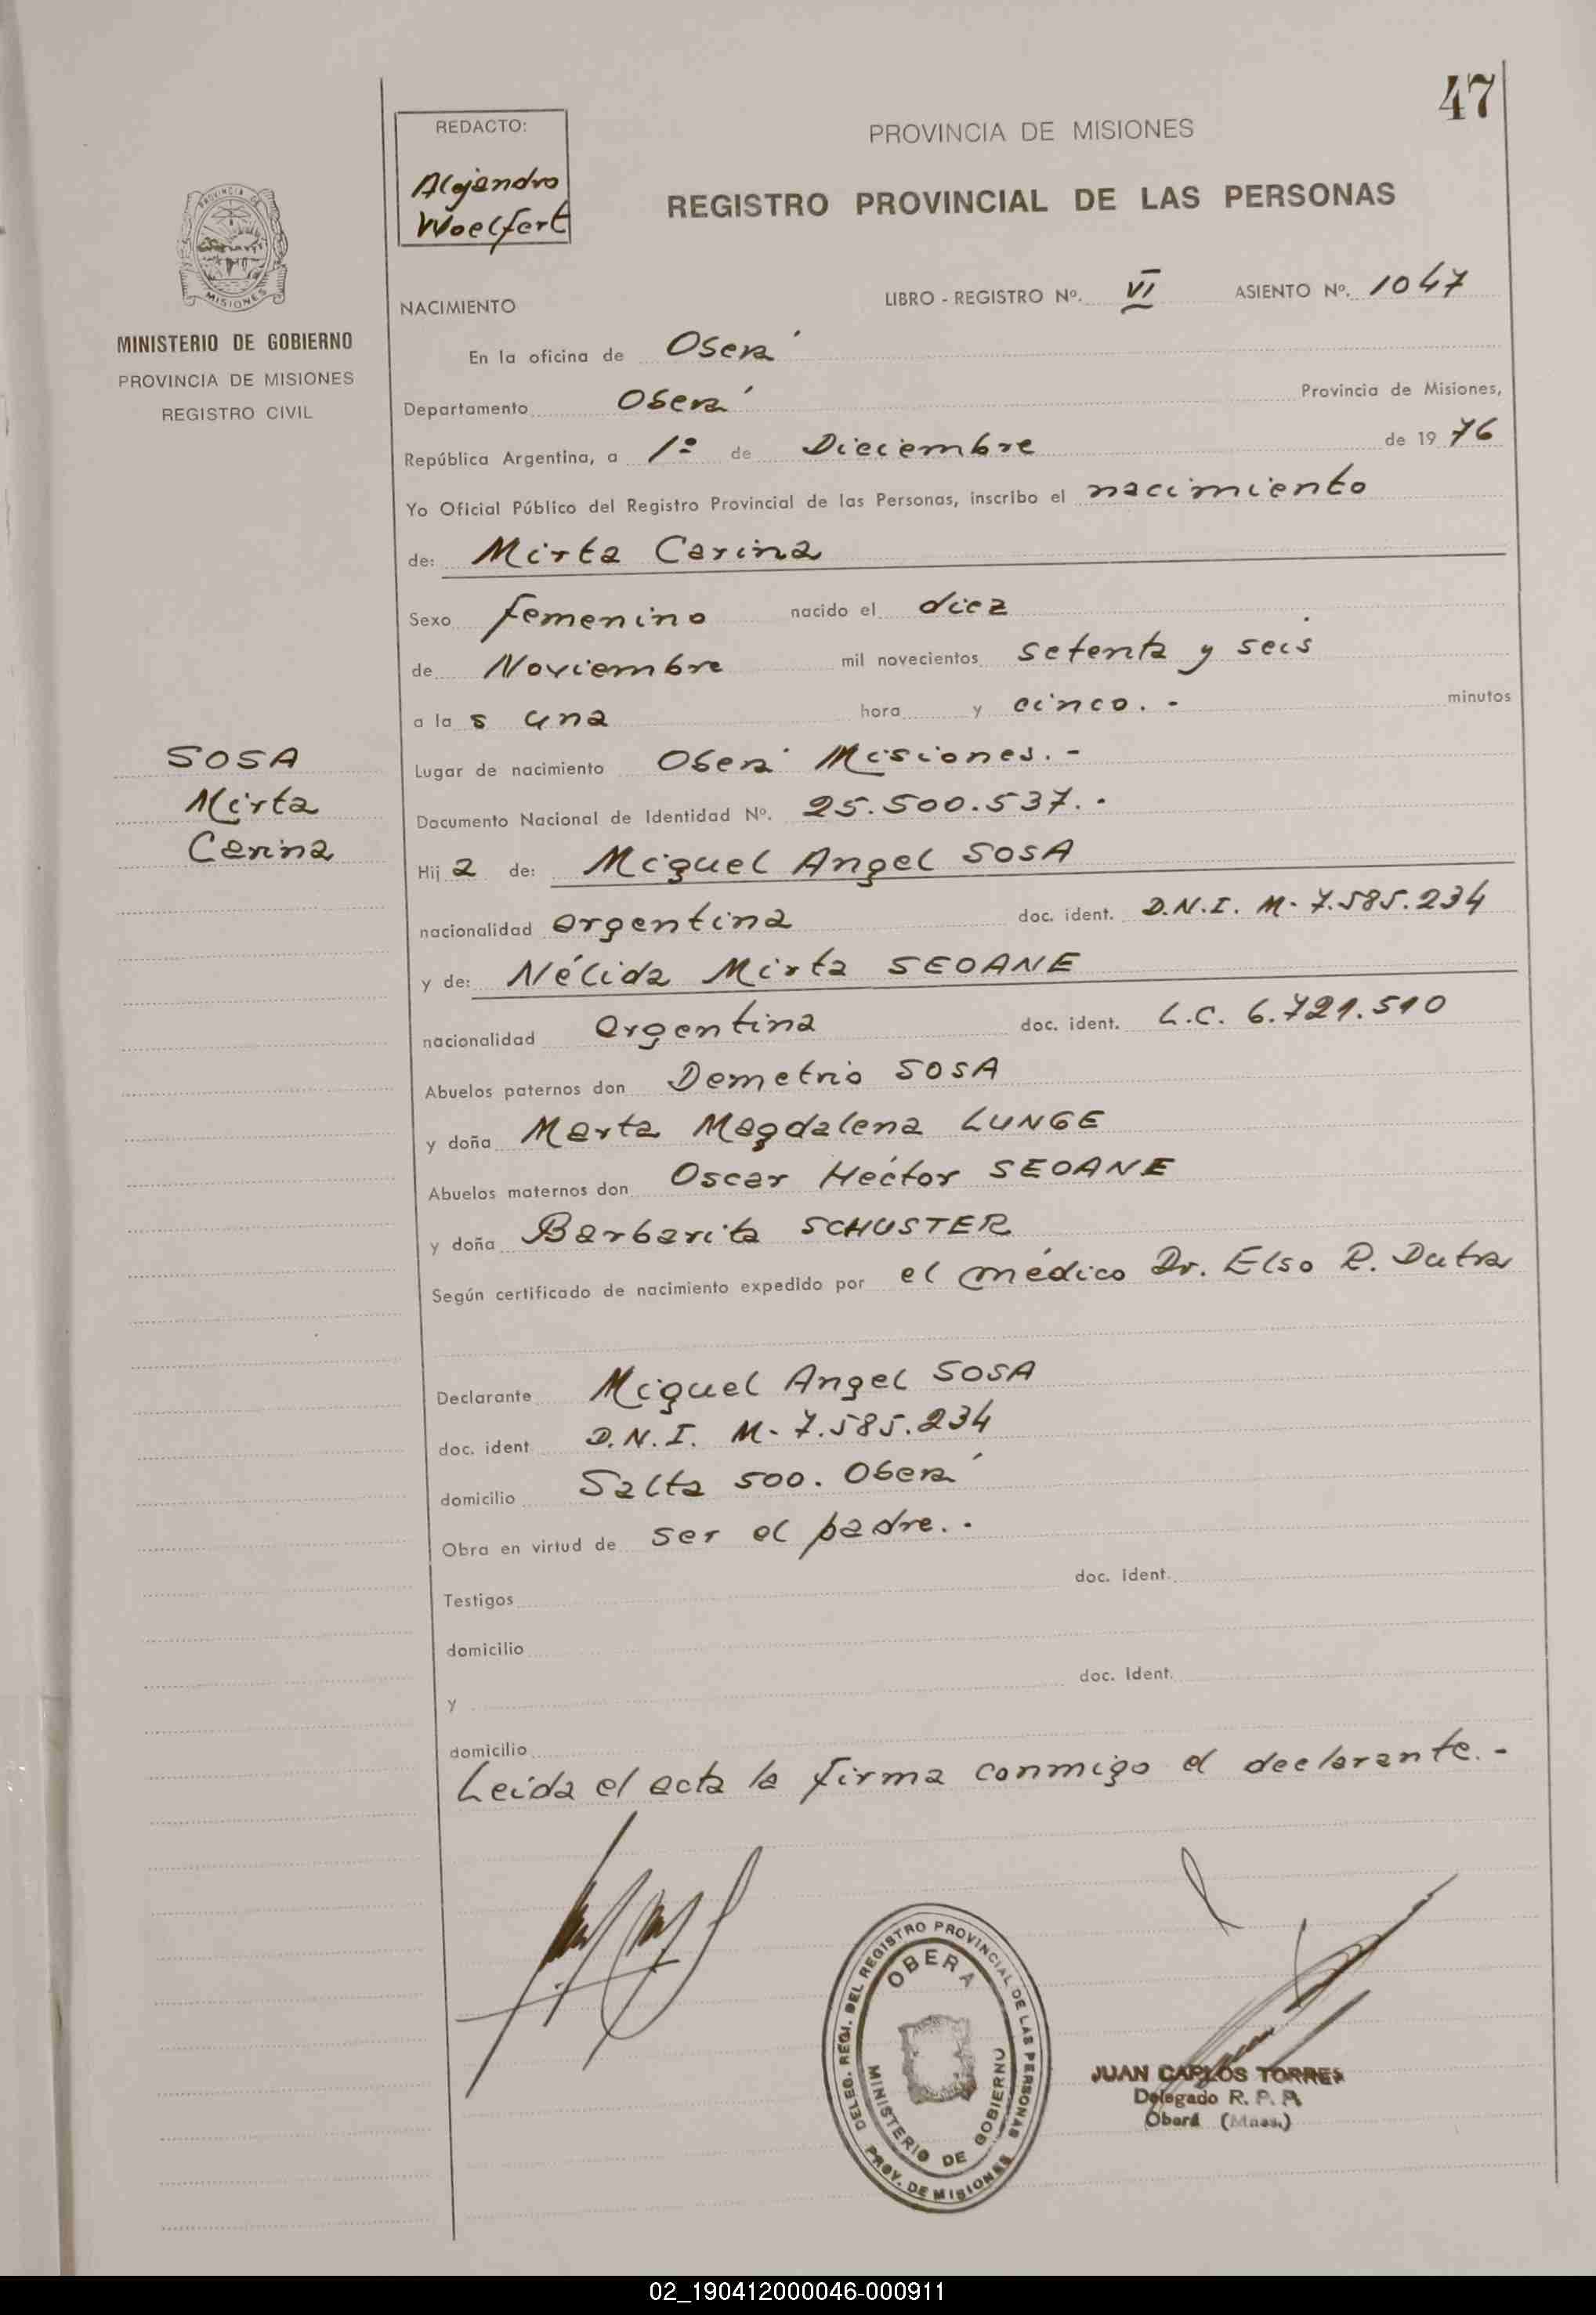 47
REDACTO:
Alejandro
Woelfert
PROVINCIA DE MISIONES
REGISTRO PROVINCIAL DE LAS PERSONAS
PROVINCIA DE
MISIONES
MINISTERIO DE GOBIERNO
PROVINCIA DE MISIONES
REGISTRO CIVIL
NACIMIENTO
LIBRO - REGISTRO Nº. VI ASIENTO Nº. 1047
En la oficina de Oberá
Departamento Oberá Provincia de Misiones,
República Argentina, a 1º de Dieciembre de 1976
Yo Oficial Público del Registro Provincial de las Personas, inscribo el nacimiento
de: Mirta Carina
Sexo femenino nacido el diez
de Noviembre mil novecientos setenta y seis
a las una hora y cinco.- minutos
SOSA
Mirta
Carina
Lugar de nacimiento Oberá Misiones.-
Documento Nacional de Identidad Nº. 25.500.537.-
Hija de: Miguel Angel SOSA
nacionalidad argentina doc. ident. D.N.I. M- 7.585.234
y de: Nélida Mirta SEOANE
nacionalidad argentina doc. ident. L.C. 6.721.510
Abuelos paternos don Demetrio SOSA
y doña Marta Magdalena LUNGE
Abuelos maternos don Oscar Héctor SEOANE
y doña Barbarita SCHUSTER
Según certificado de nacimiento expedido por el médico Dr. Elso R. Dutra
Declarante Miguel Angel SOSA
doc. ident D.N.I. M- 7.585.234
domicilio Salta 500. Oberá
Obra en virtud de ser el padre.-
Testigos doc. Ident.
domicilio
y doc. Ident.
domicilio
Leida el acta la firma conmigo el declarante.-
DELEG. REGI. DEL REGISTRO PROVINCIAL DE LAS PERSONAS
OBERA
MINISTERIO DE GOBIERNO
PROV. DE MISIONES
JUAN CARLOS TORRES
Delegado R. P. P.
Oberá (Mnes.)
02_190412000046-000911